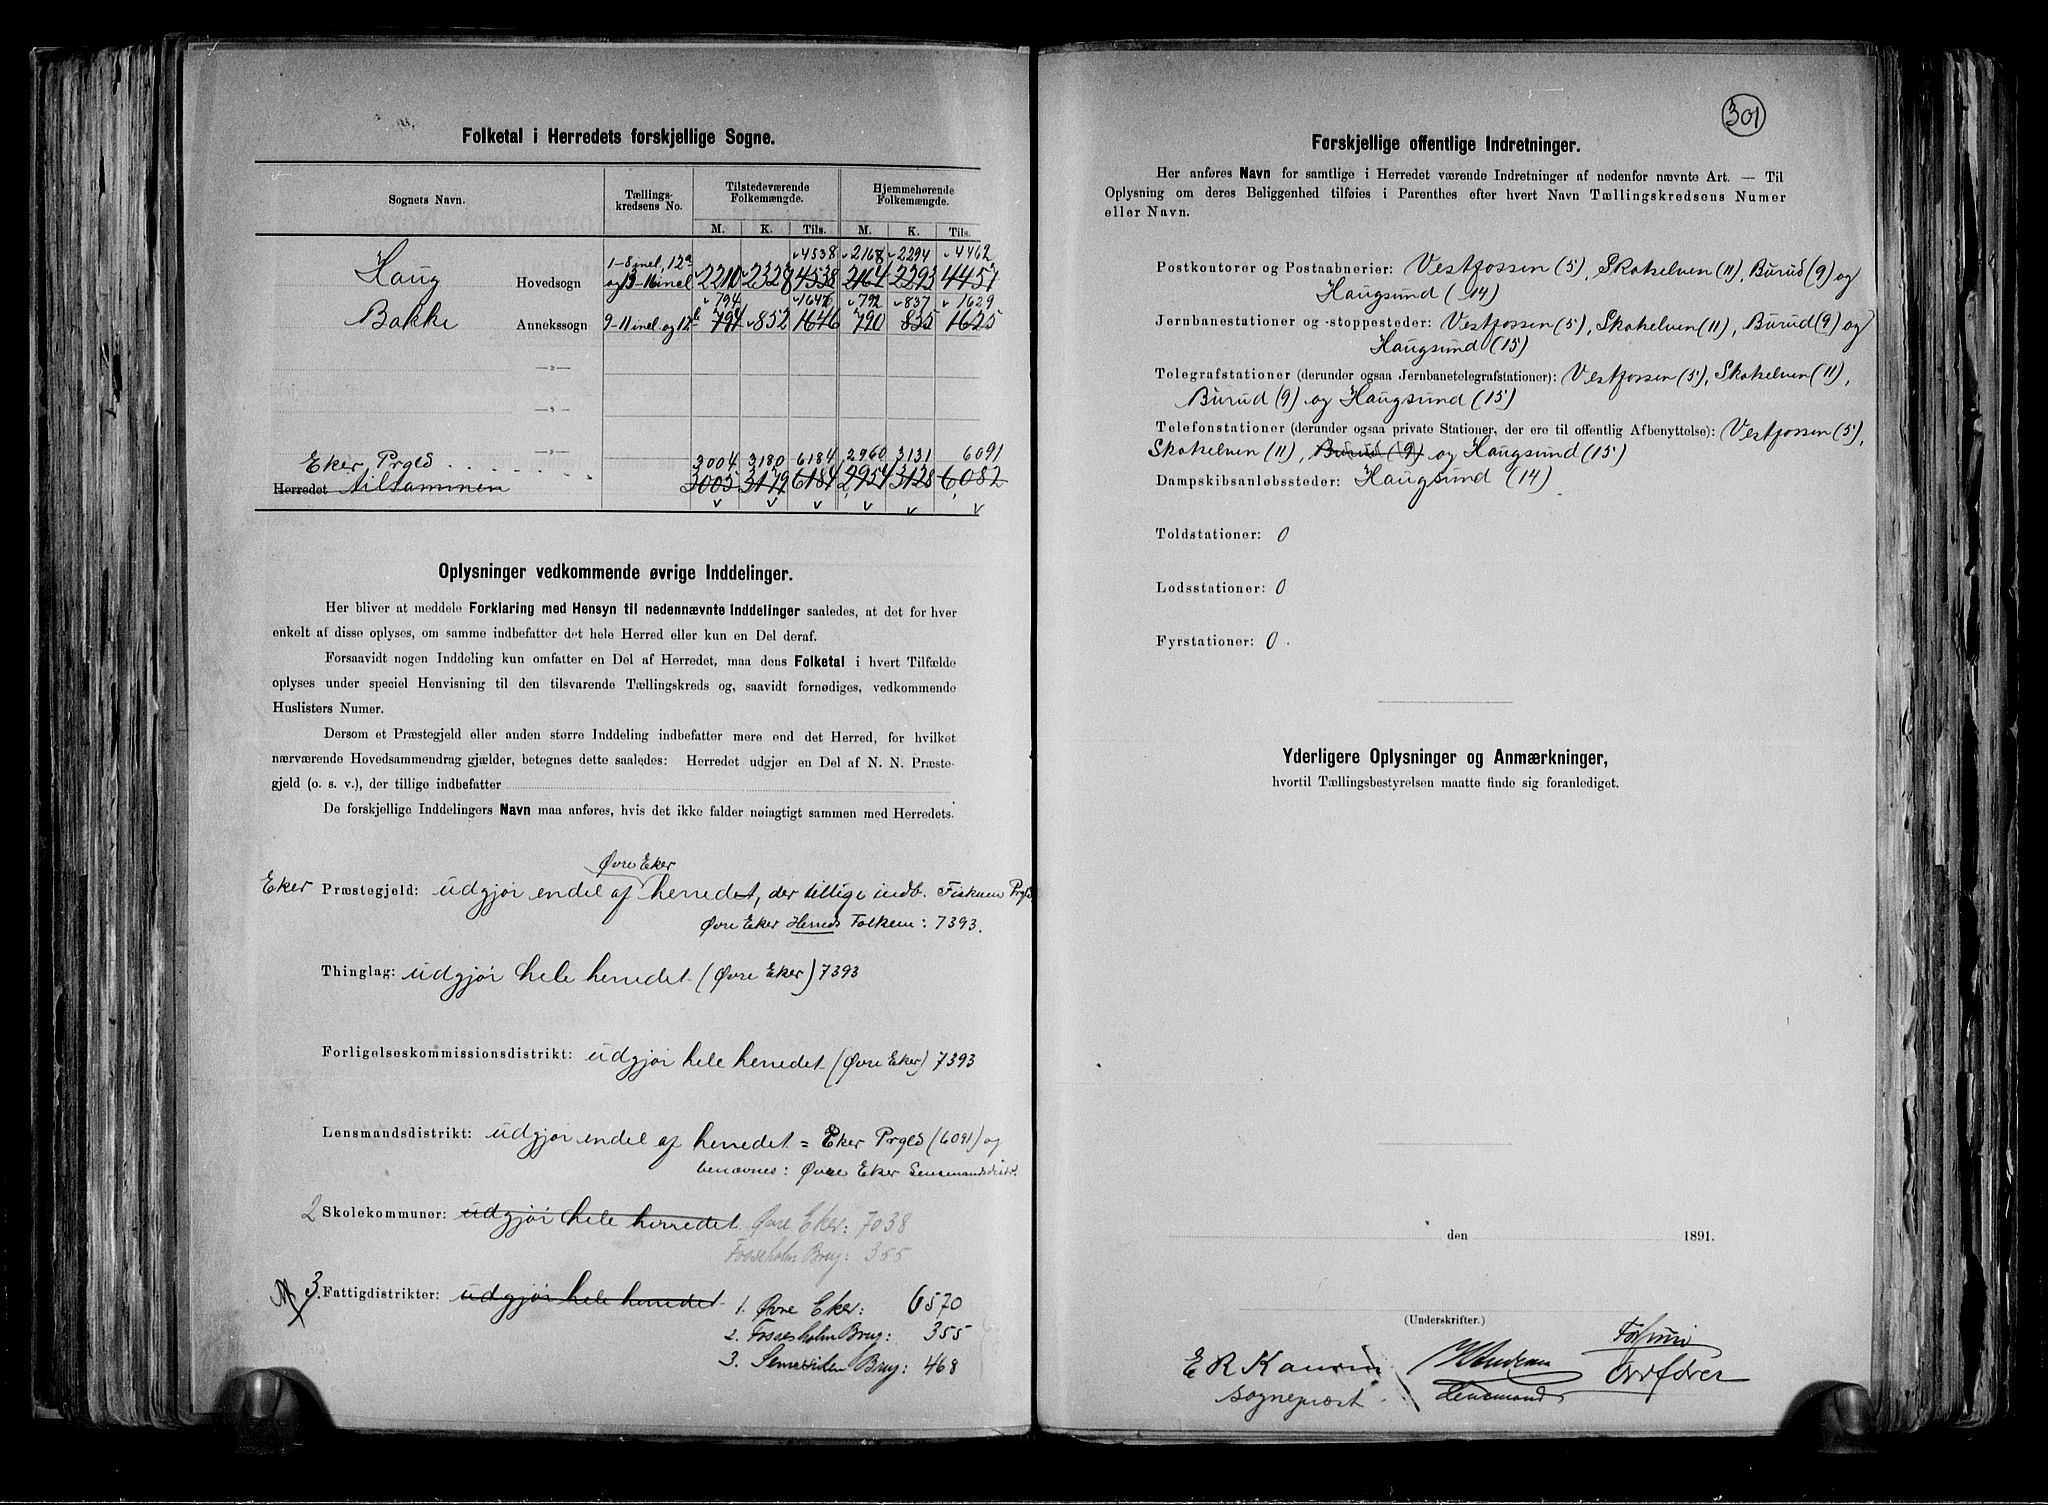 Folketal i Herredets forskjellige Sogne.
Sognets Navn. Tællings- kredsens No. Tilstedeværende Folkemængde. Hjemmehørende Folkemængde.
M. K. Tils. M. K. Tils.
4538 2168 2294 4462
Haug Hovedsogn 1-8 incl, 12a og 13-16 incl 2210 2328 4538 2164 2293 4457
794 1646 792 837 1629
Bakke Annekssogn 9-11 incl og 12b 794 852 1646 790 835 1625
-„-
-„-
Eker Prgld 3004 3180 6184 2960 3131 6091
Herredet tilsammen 3005 3179 6184 2954 3128 6082
Oplysninger vedkommende øvrige Inddelinger.
Her bliver at meddele Forklaring med Hensyn til nedennævnte Inddelinger saaledes, at det for hver
enkelt af disse oplyses, om samme indbefatter det hele Herred eller kun en Del deraf.
Forsaavidt nogen Inddeling kun omfatter en Del af Herredet, maa dens Folketal i hvert Tilfælde
oplyses under speciel Henvisning til den tilsvarende Tællingskreds og, saavidt fornødiges, vedkommende
Huslisters Numer.
Dersom et Præstegjeld eller anden større Inddeling indbefatter mere end det Herred, for hvilket
nærværende Hovedsammendrag gjælder, betegnes dette saaledes: Herredet udgjør en Del af N. N. Præste-
gjeld (o. s. v.), der tillige indbefatter
De forskjellige Inddelingers Navn maa anføres, hvis det ikke falder nøiagtigt sammen med Herredets.
Øvre Eker
Eker Præstegjeld: udgjør endel af herredet, der tillige indb. Fiskum Prgld
Øvre Eker Herreds Folkem: 7393.
Thinglag: udgjør hele herredet (Øvre Eker) 7393
Forligelseskommissionsdistrikt: udgjør hele herredet (Øvre Eker) 7393
Lensmandsdistrikt: udgjør endel af herredet = Eker Prgld (6091) og
benævnes: Øvre Eker Lensmandsdistr.
2 Skolekommuner: udgjør hele herredet Øvre Eker: 7038
Fosseholm Brug: 355
3. Fattigdistrikter: udgjør hele herredet 1. Øvre Eker: 6570
2. Fossesholm Brug: 355
3. Semssilen Brug: 468
301
Forskjellige offentlige Indretninger.
Her anføres Navn for samtlige i Herredet værende Indretninger af nedenfor nævnte Art. — Til
Oplysning om deres Beliggenhed tilføies i Parenthes efter hvert Navn Tællingskredsens Numer
eller Navn.
Postkontorer og Postaabnerier: Vestfossen (5), Skotselven (11), Burud (9) og
Haugsund (14)
Jernbanestationer og -stoppesteder: Vestfossen (5), Skotselven (11), Burud (9) og
Haugsund (15)
Telegrafstationer (derunder ogsaa Jernbanetelegrafstationer): Vestfossen (5), Skotselven (11),
Burud (9) og Haugsund (15)
Telefonstationer (derunder ogsaa private Stationer, der ere til offentlig Afbenyttelse): Vestfossen (5),
Skotselven (11), Burud (9) og Haugsund (15)
Dampskibsanløbssteder: Haugsund (14)
Toldstationer: 0
Lodsstationer: 0
Fyrstationer: 0.
Yderligere Oplysninger og Anmærkninger,
hvortil Tællingsbestyrelsen maatte finde sig foranlediget.
den 1891.
(Underskrifter.)
E R Kaurin
sognepræst
Lensmand
Ordfører